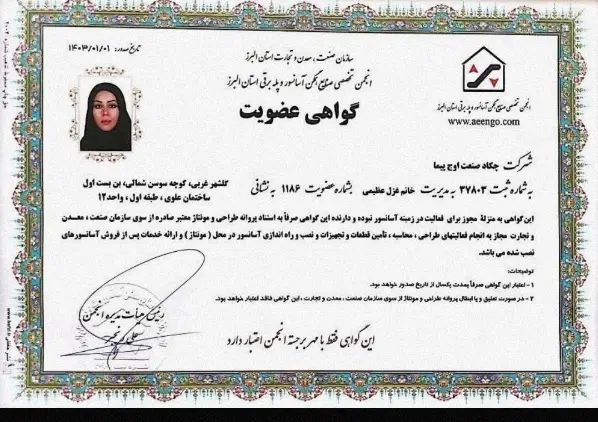 تاریخ صدور: ۱۴۰۳/۰۱/۰۱
سازمان صنعت، معدن و تجارت استان البرز
انجمن تخصصی صنایع همگن آسانسور و پله برقی استان البرز
انجمن تخصصی صنایع همگن آسانسور و پله برقی استان البرز
www.aeengo.com
گواهی عضویت
شرکت چکاد صنعت اوج پیما
به شماره ثبت ۳۷۸۰۳ به مدیریت خانم غزل عظیمی بشماره عضویت ۱۱۸۶ به نشانی
گلشهر غربی، کوچه سوسن شمالی، بن بست اول
ساختمان علوی، طبقه اول، واحد۱۲
این گواهی به منزلهٔ مجوز برای فعالیت در زمینه آسانسور نبوده و دارنده این گواهی صرفاً به استناد پروانه طراحی و مونتاژ معتبر صادره از سوی سازمان صنعت، معـدن
و تجارت مجاز به انجام فعالیتهای طراحی، محاسبه، تأمین قطعات و تجهیزات و نصب و راه اندازی آسانسور در محل (مونتاژ) و ارائه خدمات پس از فروش آسانسورهای
نصب شده می باشد.
توضیحات:
۱ - اعتبار این گواهی صرفـاً بمدت یکسال از تاریخ صدور خواهد بود.
۲ - در صورت تعلیق و یا ابطال پروانه طراحی و مونتاژ از سوی سازمان صنعت، معدن و تجارت، این گواهی فاقد اعتبار خواهد بود.
رئیس هیأت مدیره انجمن
این گواهی فقط با مهر برجسته انجمن اعتبار دارد